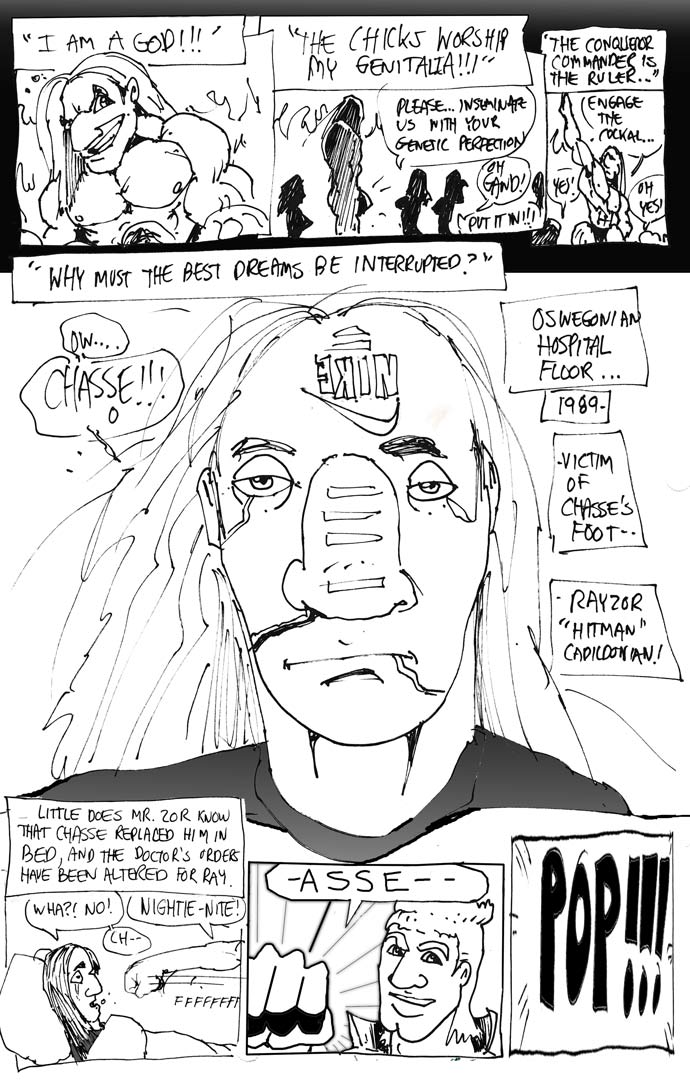 "I AM A GOD!!!"
"THE CHICKS WORSHIP
MY GENITALIA!!!"
PLEASE... INSEMINATE
US WITH YOUR
GENETIC PERFECTION
OH
GAND!
PUT IT IN!!!
"THE CONQUEROR
COMMANDER IS
THE RULER..."
ENGAGE
THE
COCKAL...
YES!
OH
YES!
"WHY MUST THE BEST DREAMS BE INTERRUPTED?"
OW....
CHASSE!!!
NIKE
OSWEGONIAN
HOSPITAL
FLOOR...
1989-
-VICTIM
OF
CHASSE'S
FOOT--
- RAYZOR
"HITMAN"
CADILDONIAN!
LITTLE DOES MR. ZOR KNOW
THAT CHASSE REPLACED HIM IN
BED, AND THE DOCTOR'S ORDERS
HAVE BEEN ALTERED FOR RAY.
WHA?! NO!
CH--
NIGHTIE-NITE!
FFFFFFFT
-ASSE--
POP!!!